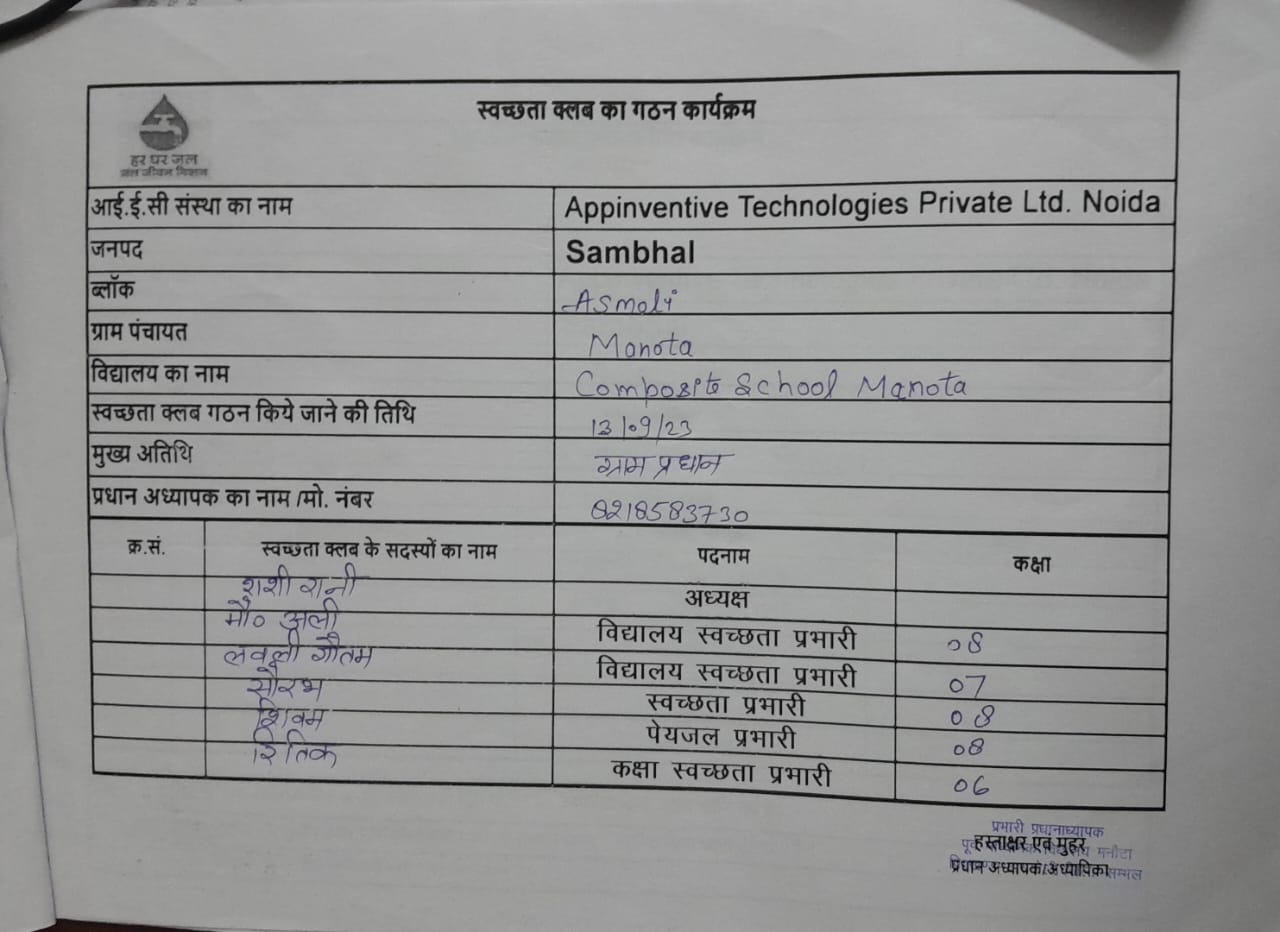 स्वच्छता क्लब का गठन कार्यक्रम
हर घर जल
जल जीवन मिशन
आई.ई.सी संस्था का नाम Appinventive Technologies Private Ltd. Noida
जनपद Sambhal
ब्लॉक Asmoli
ग्राम पंचायत Manota
विद्यालय का नाम Composite School Manota
स्वच्छता क्लब गठन किये जाने की तिथि 13/09/23
मुख्य अतिथि ग्राम प्रधान
प्रधान अध्यापक का नाम /मो. नंबर 8218583730
क्र.सं. स्वच्छता क्लब के सदस्यों का नाम पदनाम कक्षा
शशी रानी अध्यक्ष
मौ० अली विद्यालय स्वच्छता प्रभारी 08
लवली गौतम विद्यालय स्वच्छता प्रभारी 07
सौरभ स्वच्छता प्रभारी 08
शिवम पेयजल प्रभारी 08
रितिक कक्षा स्वच्छता प्रभारी 06
प्रभारी प्रधानाध्यापक
हस्ताक्षर एवं मुहर
मनौटा
प्रधान अध्यापक/अध्यापिका
सम्भल